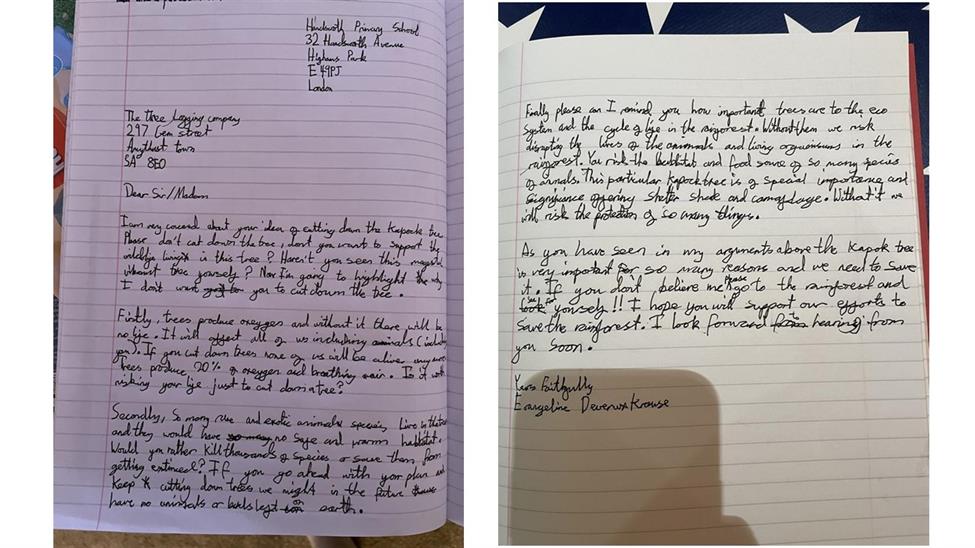 Primary School
32 Handsworth Avenue
Highams Park
E49PJ
London
The Tree Logging company
297 Gem street
town
SA 8EO
Dear Sir/Madam
I am very about your idea of cutting down the Kapok tree
Please don't cut down the tree, don't you want to support the
wildlife in this tree? Haven't you seen this
tree yourself? Now I'm going to highlight the why
I don't want you to cut down the tree.
Firstly, trees produce oxeygen and without it there will be
no life. It will affect all of us including animals (including
you). If you cut down trees none of us will be alive anymore
Trees produce 20% of oxeygen and breathing air. Is it worth
risking your life just to cut down a tree?
Secondly, so many rare and exotic animals species, Live in the tree
and they would have no safe and warm habbitat.
Would you rather Kill thousands of species or save them from
getting If you go ahead with your plan and
Keep cutting down trees we might in the future
have no animals or birds left on earth.
Finally please can I remind you how important trees are to the eco
System and the cycle of life in the rainforest. Without them we risk
disrupting the lives of the and living in the
rainforest. You risk the habbitat and food source of so many species
of animals. This particular Kapock tree is of special importance and
significance offering shelter shade and Without it we
will risk the protection of so many things.
As you have seen in my arguments above the Kapok tree
is very important for so many reasons and we need to save
it. If you don't believe me please go to the rainforest and
see for yourself!! I hope you will support our efforts to
save the rainforest. I look forward to hearing from
you soon.
Yours Faithfully
Evangeline Devereux Krause